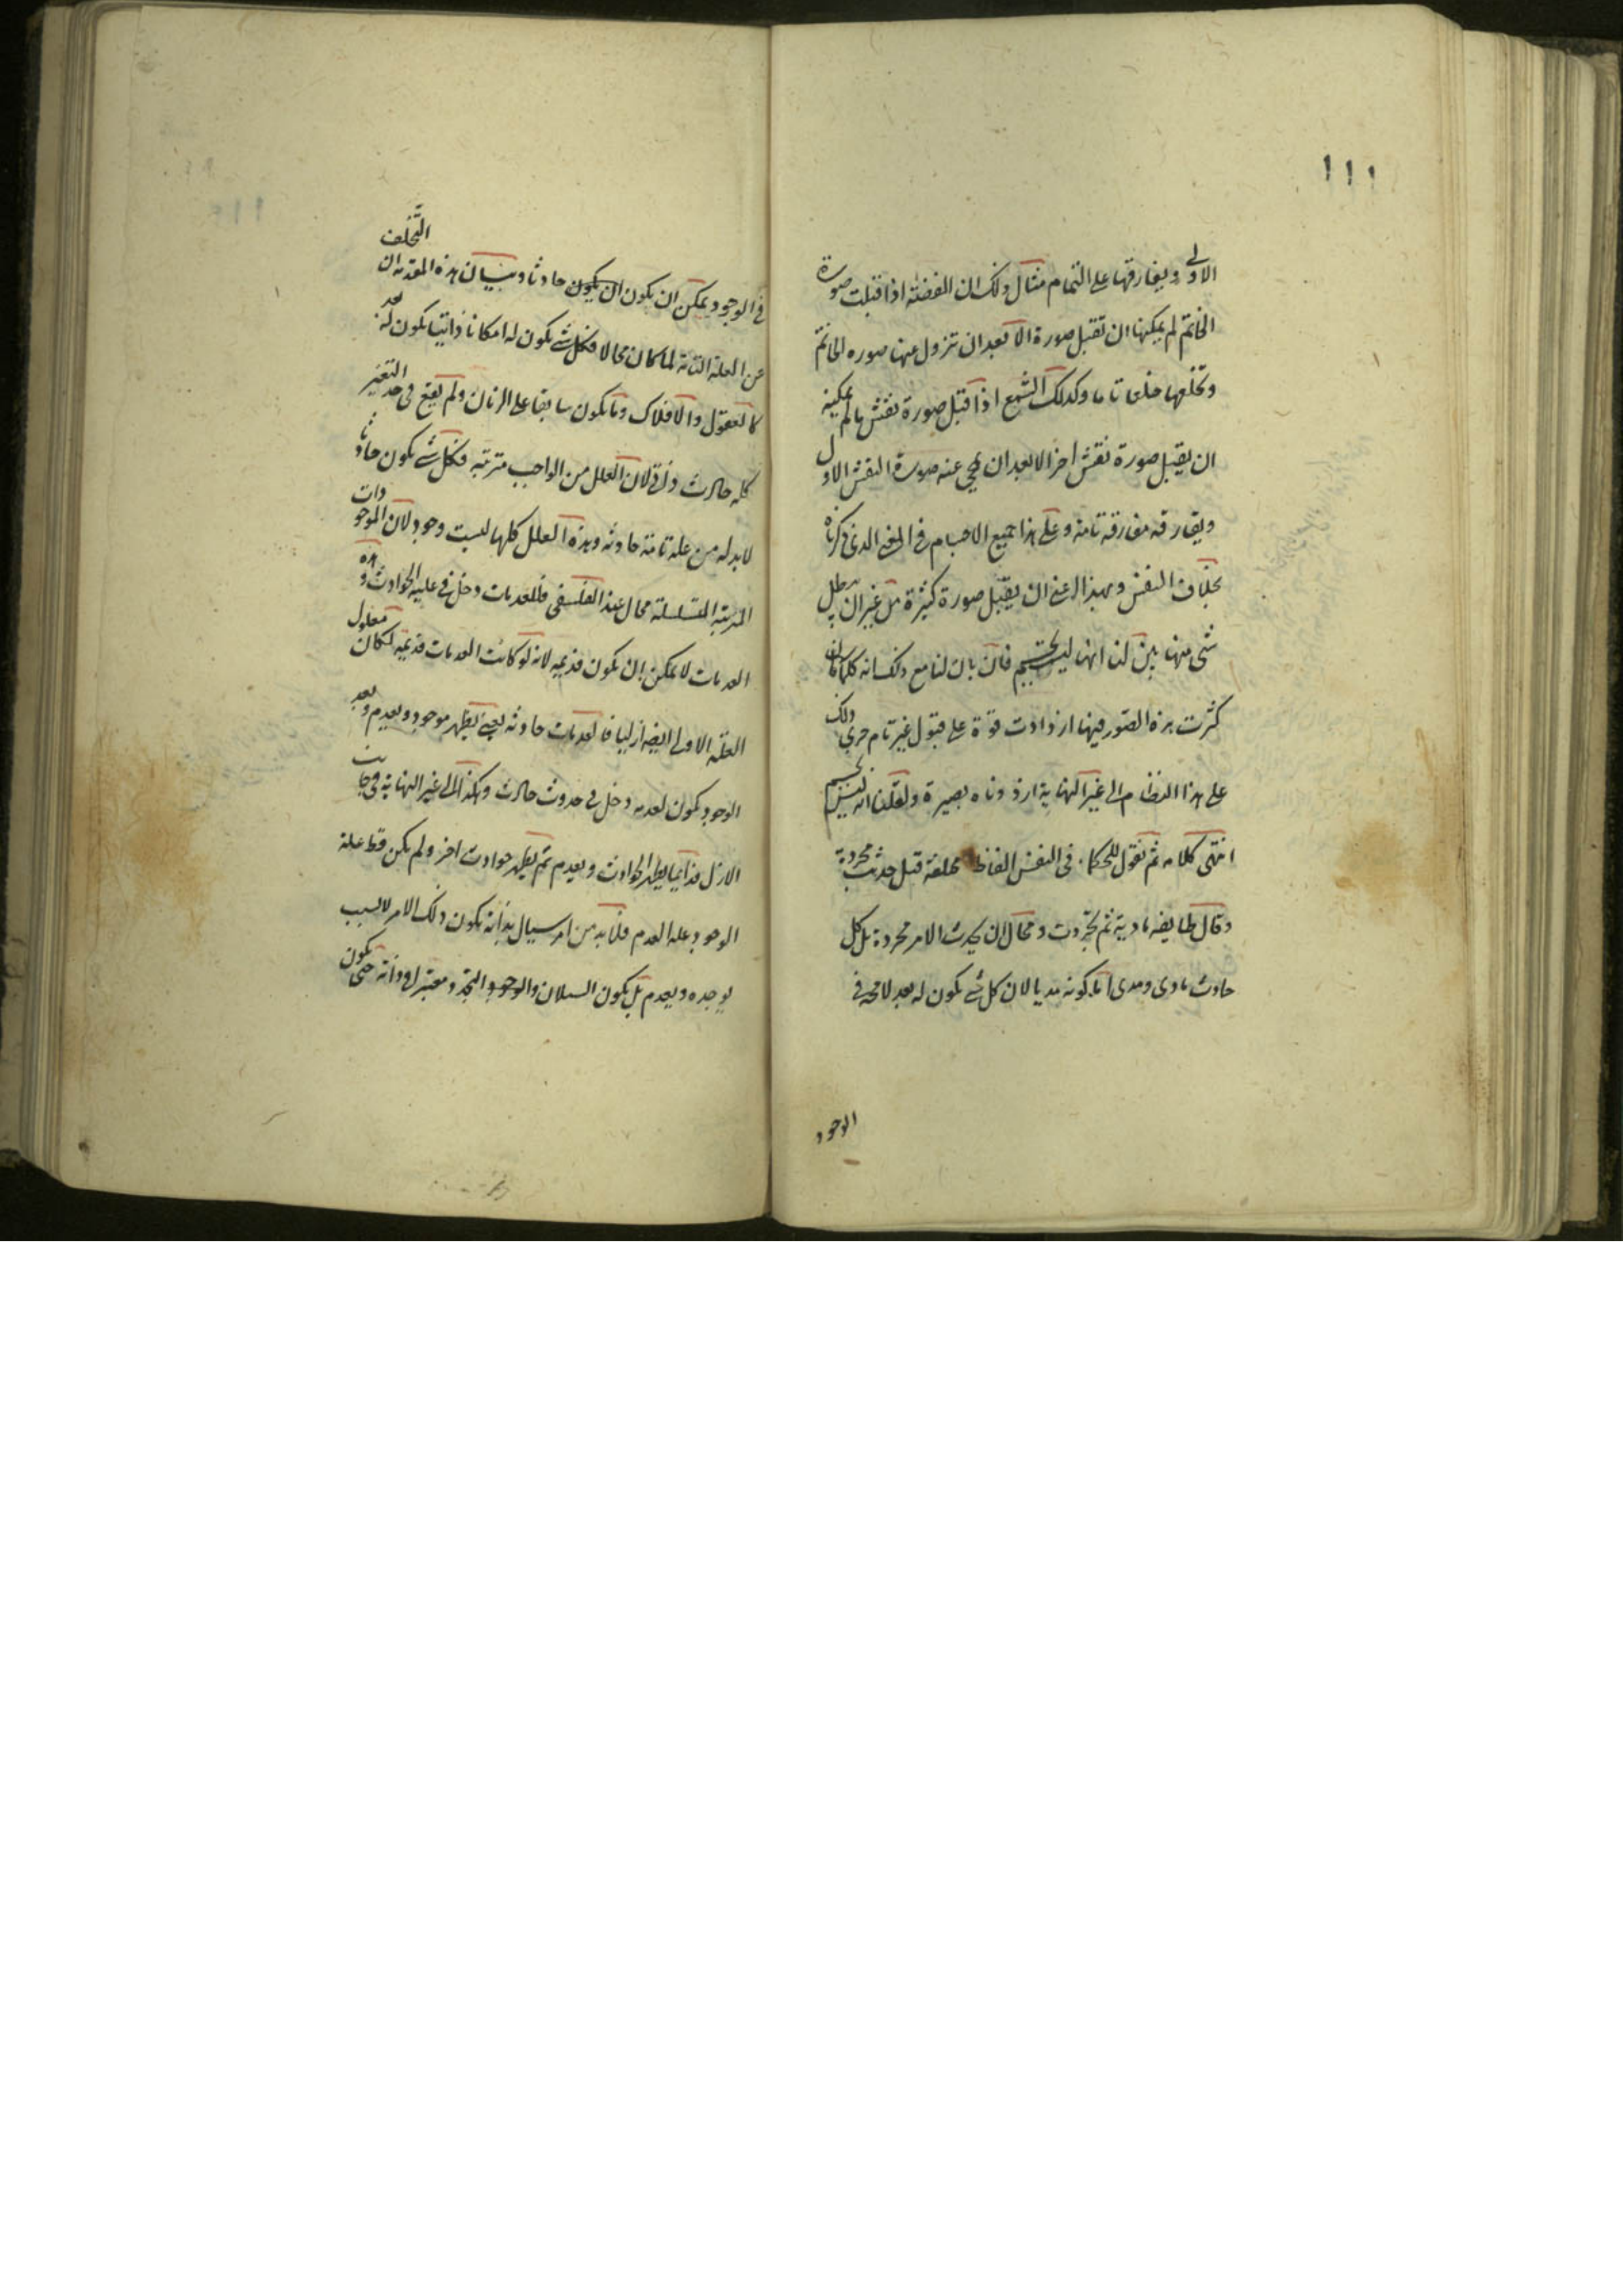 ١١١
الاولى ويفارقها على التمام مثال ذلك ان الفضة اذا قبلت صورة
الخاتم لم يمكنها ان تقبل صورة الا بعد ان تزول عنها صوره الخاتم
وتخلعها خلعا تاما وكذلك الشمع اذا قبل صورة نقش ما لم يمكنه
ان يقبل صورة نقش اخر الا بعد ان يمحي عنه صورة النقش الاول
ويفارقه مفارقة تامة وعلى هذا جميع الاجسام في المعنى الذي ذكرناه
بخلاف النفس وبهذا المعنى ان يقبل صورة كثيرة من غير ان يبطل
شي منها بين لنا انها ليست بجسم فان بان لنا مع ذلك انه كلما كان
كثرت هذه الصور فيها ازدادت قوة على قبول غيرها ثم جرى ذلك
على هذا النظام الى غير النهاية ازددناه بصيرة ولعلمنا انه ليس بجسم
انتهى كلامه ثم نقول للحكما في النفس الفاظ مختلفة قيل حدثت مجردة
وقال طايفه مادية ثم تجردت ومحال ان يحدث الامر مجردة بل كل
حادث مادي ومدى اما كونه مديا لان كل شي يكون له بعد لا محه في
الوجود
في الوجود يمكن ان يكون ان يكون حادثا وبيان هذه المقدمة ان التخلف
عن العلة التامة لما كان محالا فكل شي يكون له امكانا ذاتيا يكون له بعد
كالعقول والافلاك وما يكون سابقا على الزمان ولم يقع في حد التغير
كله حادث ذاتي لان العلل من الواجب مترتبه فكل شي يكون حادثا
لا بد له من علة تامة حادثه وهذه العلل كلها ليست وجود لان الموجودات
المرتبة المتسلسلة محال عند الفلسفي فللعدمات دخل في علية الحوادث وهذه
العدمات لا يمكن ان يكون قديمه لانه لو كانت العدمات قديمه لكان معلول
العلة الاولى ايضه ازليا فالعدمات حادثه يعني يظهر موجود ويعدم وبعد
الوجود يكون لعدمه دخل في حدوث حادث وهكذا الى غير النهاية في جانب
الازل فدايما يظهر الحوادث ويعدم ثم يظهر حوادث اخر ولم يكن قط علة
الوجود علة العدم فلا بد من امر سيال بذاته يكون ذلك الامر لا بسبب
يوجده ويعدم بل يكون السيلان والوجود والتجدد معتبر في ذاته حتى يكون